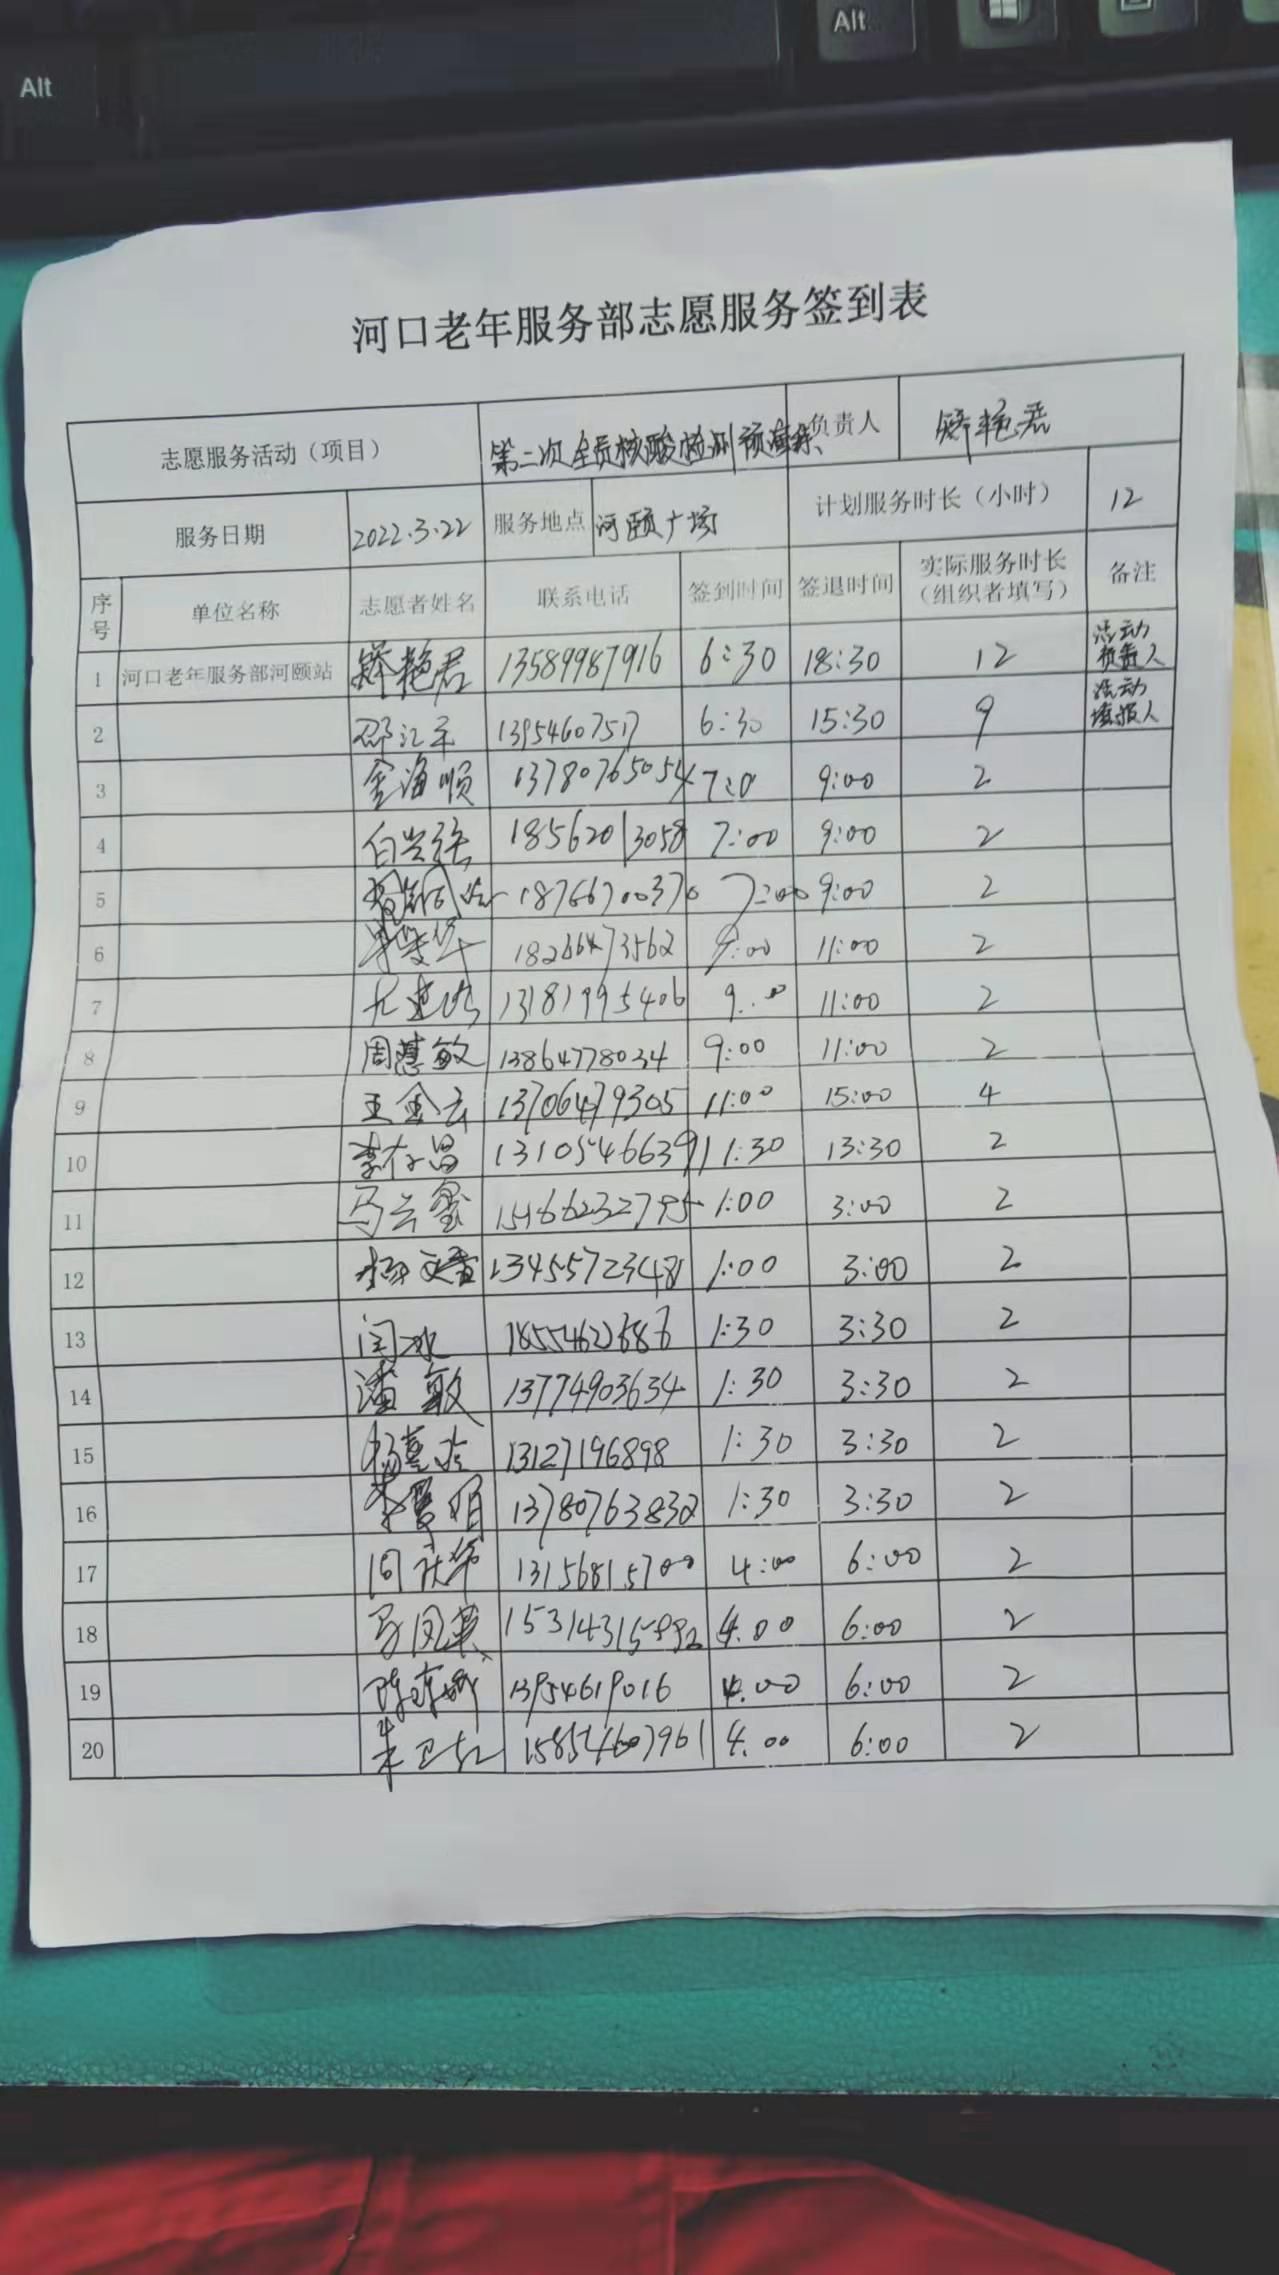 Alt
Alt
河口老年服务部志愿服务签到表
志愿服务活动（项目） 第二次全员核酸检测 负责人 矫艳君
服务日期 2022.3.22 服务地点 河颐广场 计划服务时长（小时） 12
序号 单位名称 志愿者姓名 联系电话 签到时间 签退时间 实际服务时长（组织者填写） 备注
1 河口老年服务部河颐站 矫艳君 13589987916 6:30 18:30 12 活动负责人
2 邵江军 13954607517 6:30 15:30 9 活动填报人
3 金海顺 13780765054 9:00 2
4 白兴强 18562013058 7:00 9:00 2
5 18766700370 7:00 9:00 2
6 18266473562 9:00 11:00 2
7 13181995406 9:00 11:00 2
8 周慧敏 13864778034 9:00 11:00 2
9 王金云 13706479305 11:00 15:00 4
10 李存昌 13105466391 1:30 13:30 2
11 马云 15166232795 1:00 3:00 2
12 13455723481 1:00 3:00 2
13 闫冰 1:30 3:30 2
14 潘敏 13774903634 1:30 3:30 2
15 13127196898 1:30 3:30 2
16 13780763832 1:30 3:30 2
17 周庆华 13156815700 4:00 6:00 2
18 马凤英 4.00 6:00 2
19 13954619016 4.00 6:00 2
20 朱卫红 15854607961 4.00 6:00 2